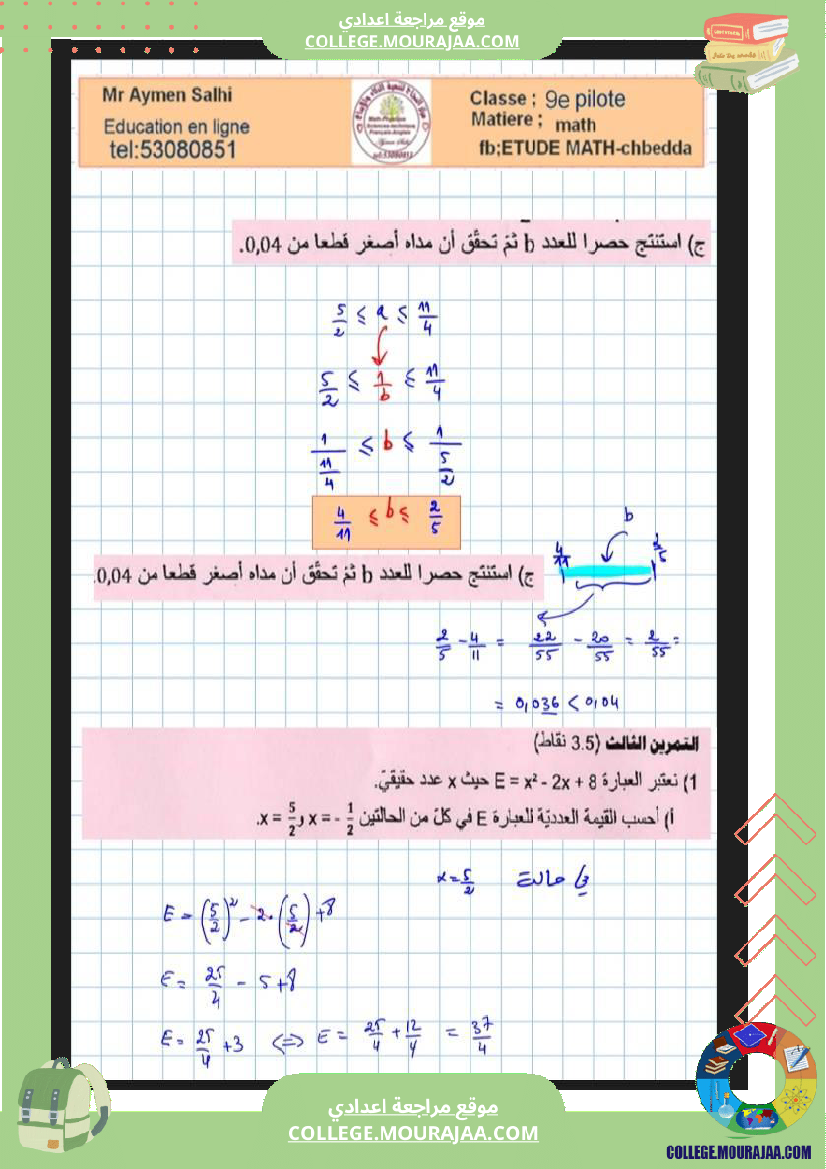 موقع مراجعة اعدادي
COLLEGE.MOURAJAA.COM
Mr Aymen Salhi
Education en ligne
tel:53080851
Classe ; 9e pilote
Matiere ; math
fb;ETUDE MATH-chbedda
ج) استنتج حصرا للعدد b ثمّ تحقّق أن مداه أصغر قطعا من 0,04.
5/2 ≤ a ≤ 11/4
5/2 ≤ 1/b ≤ 11/4
1/(11/4) ≤ b ≤ 1/(5/2)
4/11 ≤ b ≤ 2/5
b
4/11 2/5
ج) استنتج حصرا للعدد b ثمّ تحقّق أن مداه أصغر قطعا من 0,04.
2/5 - 4/11 = 22/55 - 20/55 = 2/55 =
= 0,036 < 0,04
التمرين الثالث (3.5 نقاط)
1) نعتبر العبارة E = x² - 2x + 8 حيث x عدد حقيقيّ.
أ) أحسب القيمة العدديّة للعبارة E في كلّ من الحالتين x = - 1/2 و x = 5/2.
حالة x = 5/2
E = (5/2)² - 2 · (5/2) + 8
E = 25/4 - 5 + 8
E = 25/4 + 3 ⇔ E = 25/4 + 12/4 = 37/4
موقع مراجعة اعدادي
COLLEGE.MOURAJAA.COM
COLLEGE.MOURAJAA.COM